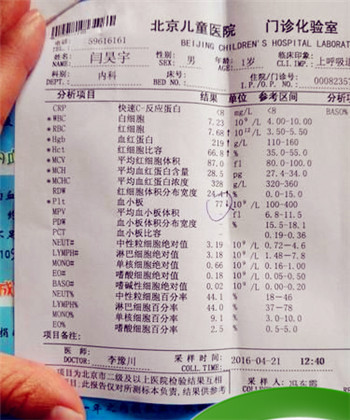 北京儿童医院 门诊化验室
BEIJING CHILDREN'S HOSPITAL LABORAT
电话: 59616161
姓名: 闫昊宇 性别: 男 年龄: 1岁 临床印象:
NAME: SEX: AGE: CLI.IMP.: 上呼吸道
科室: 内科 床号: 住院/门诊号:
DEPT.: BED NO.: I.P./O.P. NO.: 0008235
分析项目 结果 单位 参考区间 分析项目
CRP 快速C-反应蛋白 <8 mg/L <8 BASO%
*WBC 白细胞 7.23 10^9 /L 4.00-10.00
*RBC 红细胞 7.68↑ 10^12/L 3.50-5.50
*Hgb 血红蛋白 219↑ g/L 110-160
*Hct 红细胞比容 66.8↑ % 35.0-55.0
*MCV 平均红细胞体积 87.0 fl 80.0-100.0
*MCH 平均血红蛋白含量 28.5 pg 27.4-34.0
*MCHC 平均血红蛋白浓度 328 g/L 320-360
RDW 红细胞体积分布宽度 % 0.0-15.0
*Plt 血小板 77↓ 10^9 /L 100-400
MPV 平均血小板体积 fl 6.8-11.5
PDW 血小板体积分布宽度 % 15.5-18.1
PCT 血小板比容 % 0.19-0.36
NEUT# 中性粒细胞绝对值 3.19 10^9 /L 0.72-4.6
LYMPH# 淋巴细胞绝对值 3.18 10^9 /L 1.48-7.8
MONO# 单核细胞绝对值 0.66 10^9 /L 0.16-1.00
EO# 嗜酸细胞绝对值 0.18 10^9 /L 0.00-0.50
BASO# 嗜碱性细胞绝对值 0.02 10^9 /L 0.00-0.20
NEUT% 中性细胞百分率 44.1 % 18-46
LYMPH% 淋巴细胞百分率 44.0 % 37-78
MONO% 单核细胞百分率 9.1 % 3.0-10.0
EO% 嗜酸细胞百分率 2.5 % 0.5-5.0
项目备注:
医师: 李豫川 采样时间: 2016-04-21 12:40
DOCTOR: COLL.TIME:
项目为北京市二级及以上医院检验结果互相
具;此报告仅对所测标本负责,结果供参考 采样人